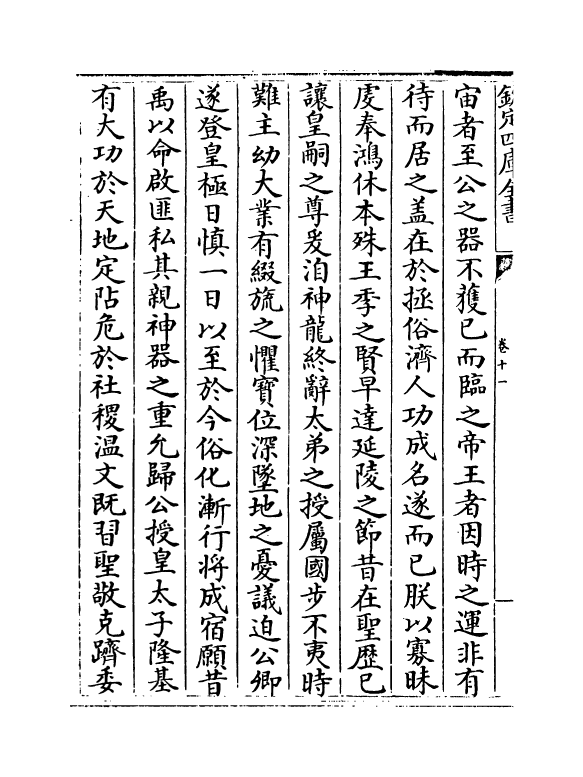 欽定四庫全書
卷十一
宙者至公之器不獲已而臨之帝王者因時之運非有
待而居之盖在於拯俗濟人功成名遂而已朕以寡昧
虔奉鴻休本殊王季之賢早達延陵之節昔在聖歴已
讓皇嗣之尊爰洎神龍終辭太弟之授屬國步不夷時
難主幼大業有綴旒之懼寶位深墜地之憂議迫公卿
遂登皇極日慎一日以至於今俗化漸行將成宿願昔
禹以命啟匪私其親神器之重允歸公授皇太子隆基
有大功於天地定阽危於社稷温文既習聖敬克躋委